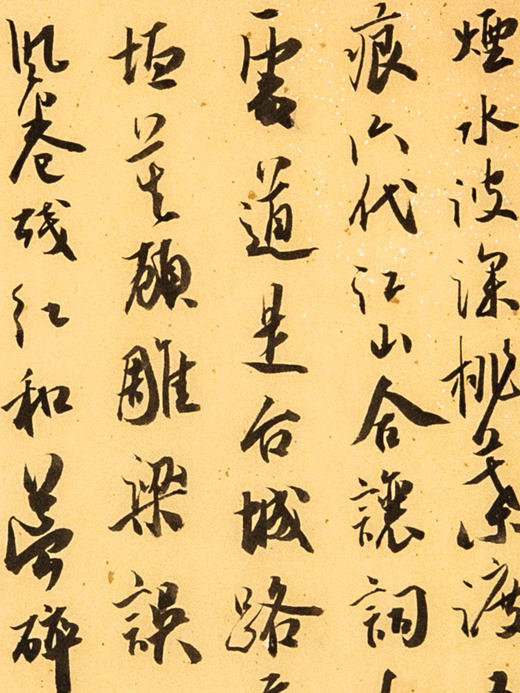 煙水波深桃葉渡
痕六代江山舍讓詞
處道是台城路
垣芜顧雕梁誤
風卷殘紅和夢碎